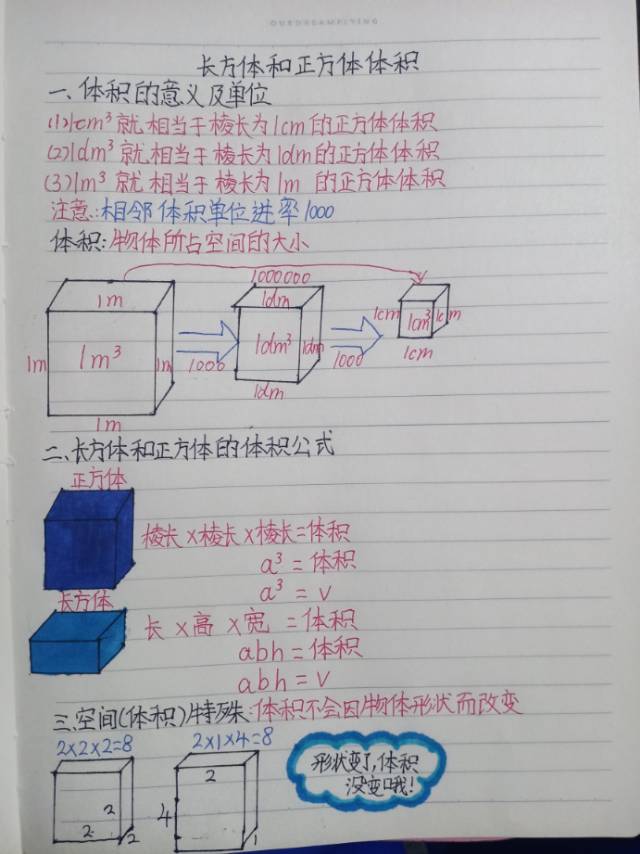 OURDREAMFLYING
长方体和正方体体积
一、体积的意义及单位
(1)1cm³就相当于棱长为1cm的正方体体积
(2)1dm³就相当于棱长为1dm的正方体体积
(3)1m³就相当于棱长为1m 的正方体体积
注意:相邻体积单位进率1000
体积:物体所占空间的大小
1000000
1m 1dm
1m 1m³ 1m 1000 1dm³ 1dm 1000 1cm 1cm³ 1cm
1m 1dm 1cm
二、长方体和正方体的体积公式
正方体
棱长×棱长×棱长=体积
a³=体积
a³=v
长方体
长×高×宽=体积
abh=体积
abh=v
三.空间(体积)特殊:体积不会因物体形状而改变
2×2×2=8 2×1×4=8
2 2 2
2 4 1
形状变了,体积
没变哦!